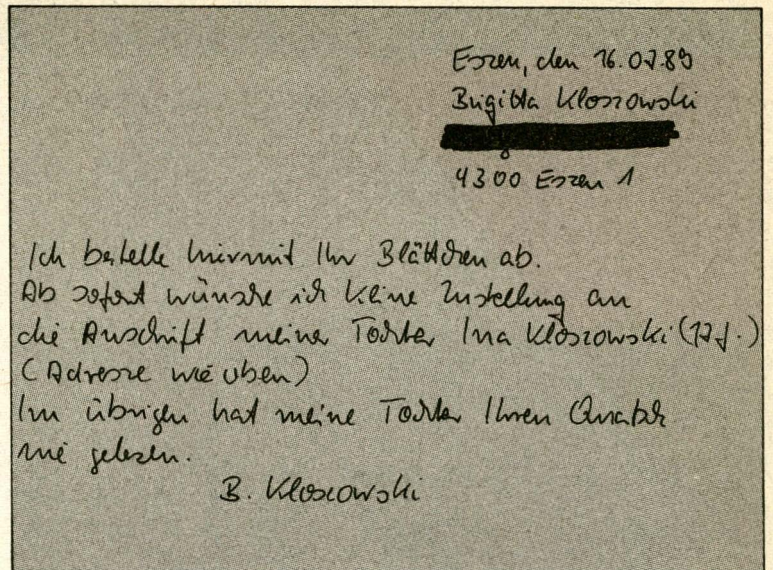 Essen, den 16.07.89
Brigitta Klossowski
4300 Essen 1
Ich bestelle hiermit Ihr Blättchen ab.
Ab sofort wünsche ich keine Zustellung an
die Anschrift meiner Tochter Ina Klossowski (17 J.)
(Adresse wie oben)
Im übrigen hat meine Tochter Ihren Quatsch
nie gelesen.
B. Klossowski